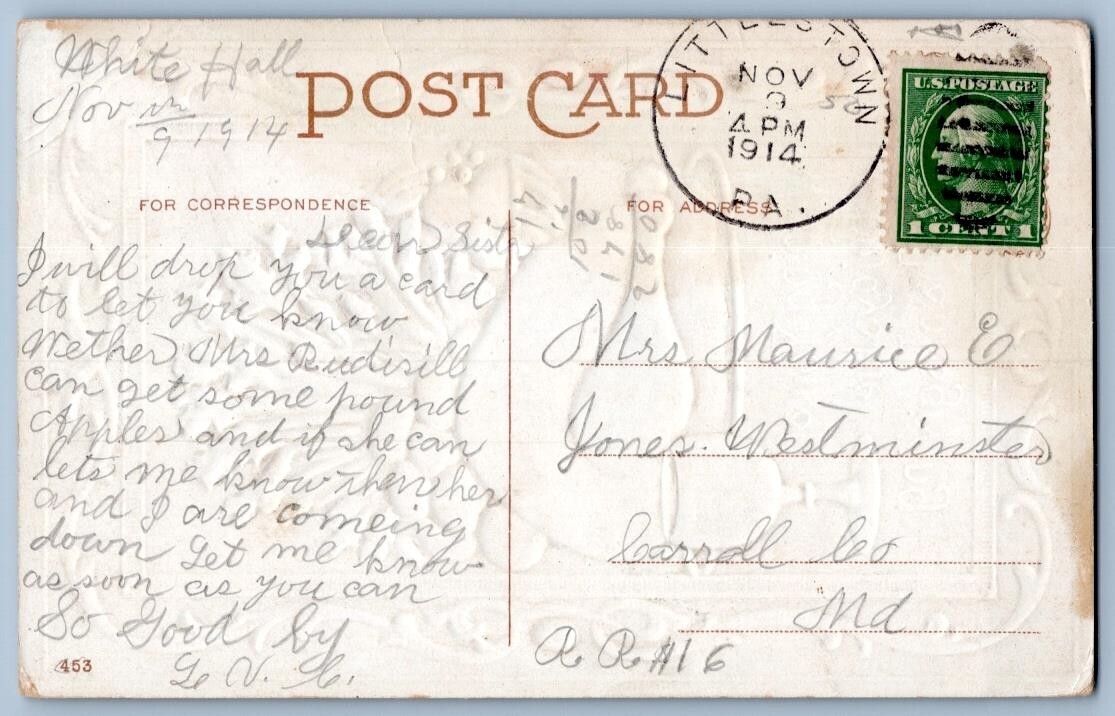 White Hall
Nov 9th 1914
POST CARD
LITTLESTOWN
NOV
9
4 PM
1914
PA.
U.S. POSTAGE
1 CENT 1
FOR CORRESPONDENCE
Dear Sister
I will drop you a card
to let you know
Wether Mrs Rudisill
can get some pound
Apples and if she can
lets me know then her
and I are comeing
down Let me know
as soon as you can
So Good by
L. V. C.
453
FOR ADDRESS
Mrs Maurice E
Jones. Westminster
Carroll Co
Md
R R #16